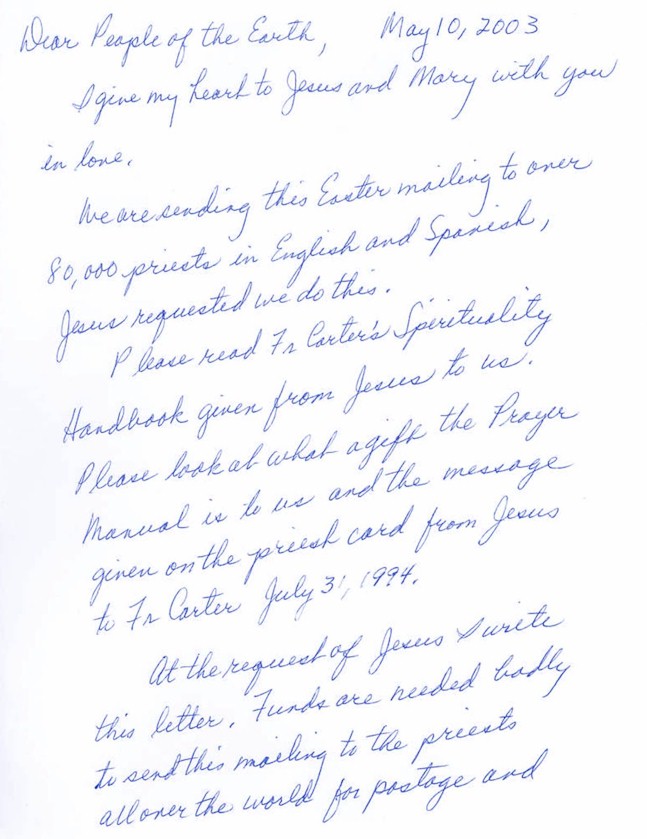 Dear People of the Earth, May 10, 2003
I give my heart to Jesus and Mary with you
in love.
We are sending this Easter mailing to over
80,000 priests in English and Spanish,
Jesus requested we do this.
Please read Fr Carter's Spirituality
Handbook given from Jesus to us.
Please look at what a gift the Prayer
Manual is to us and the message
given on the priest card from Jesus
to Fr Carter July 31, 1994.
At the request of Jesus I write
this letter. Funds are needed badly
to send this mailing to the priests
all over the world for postage and